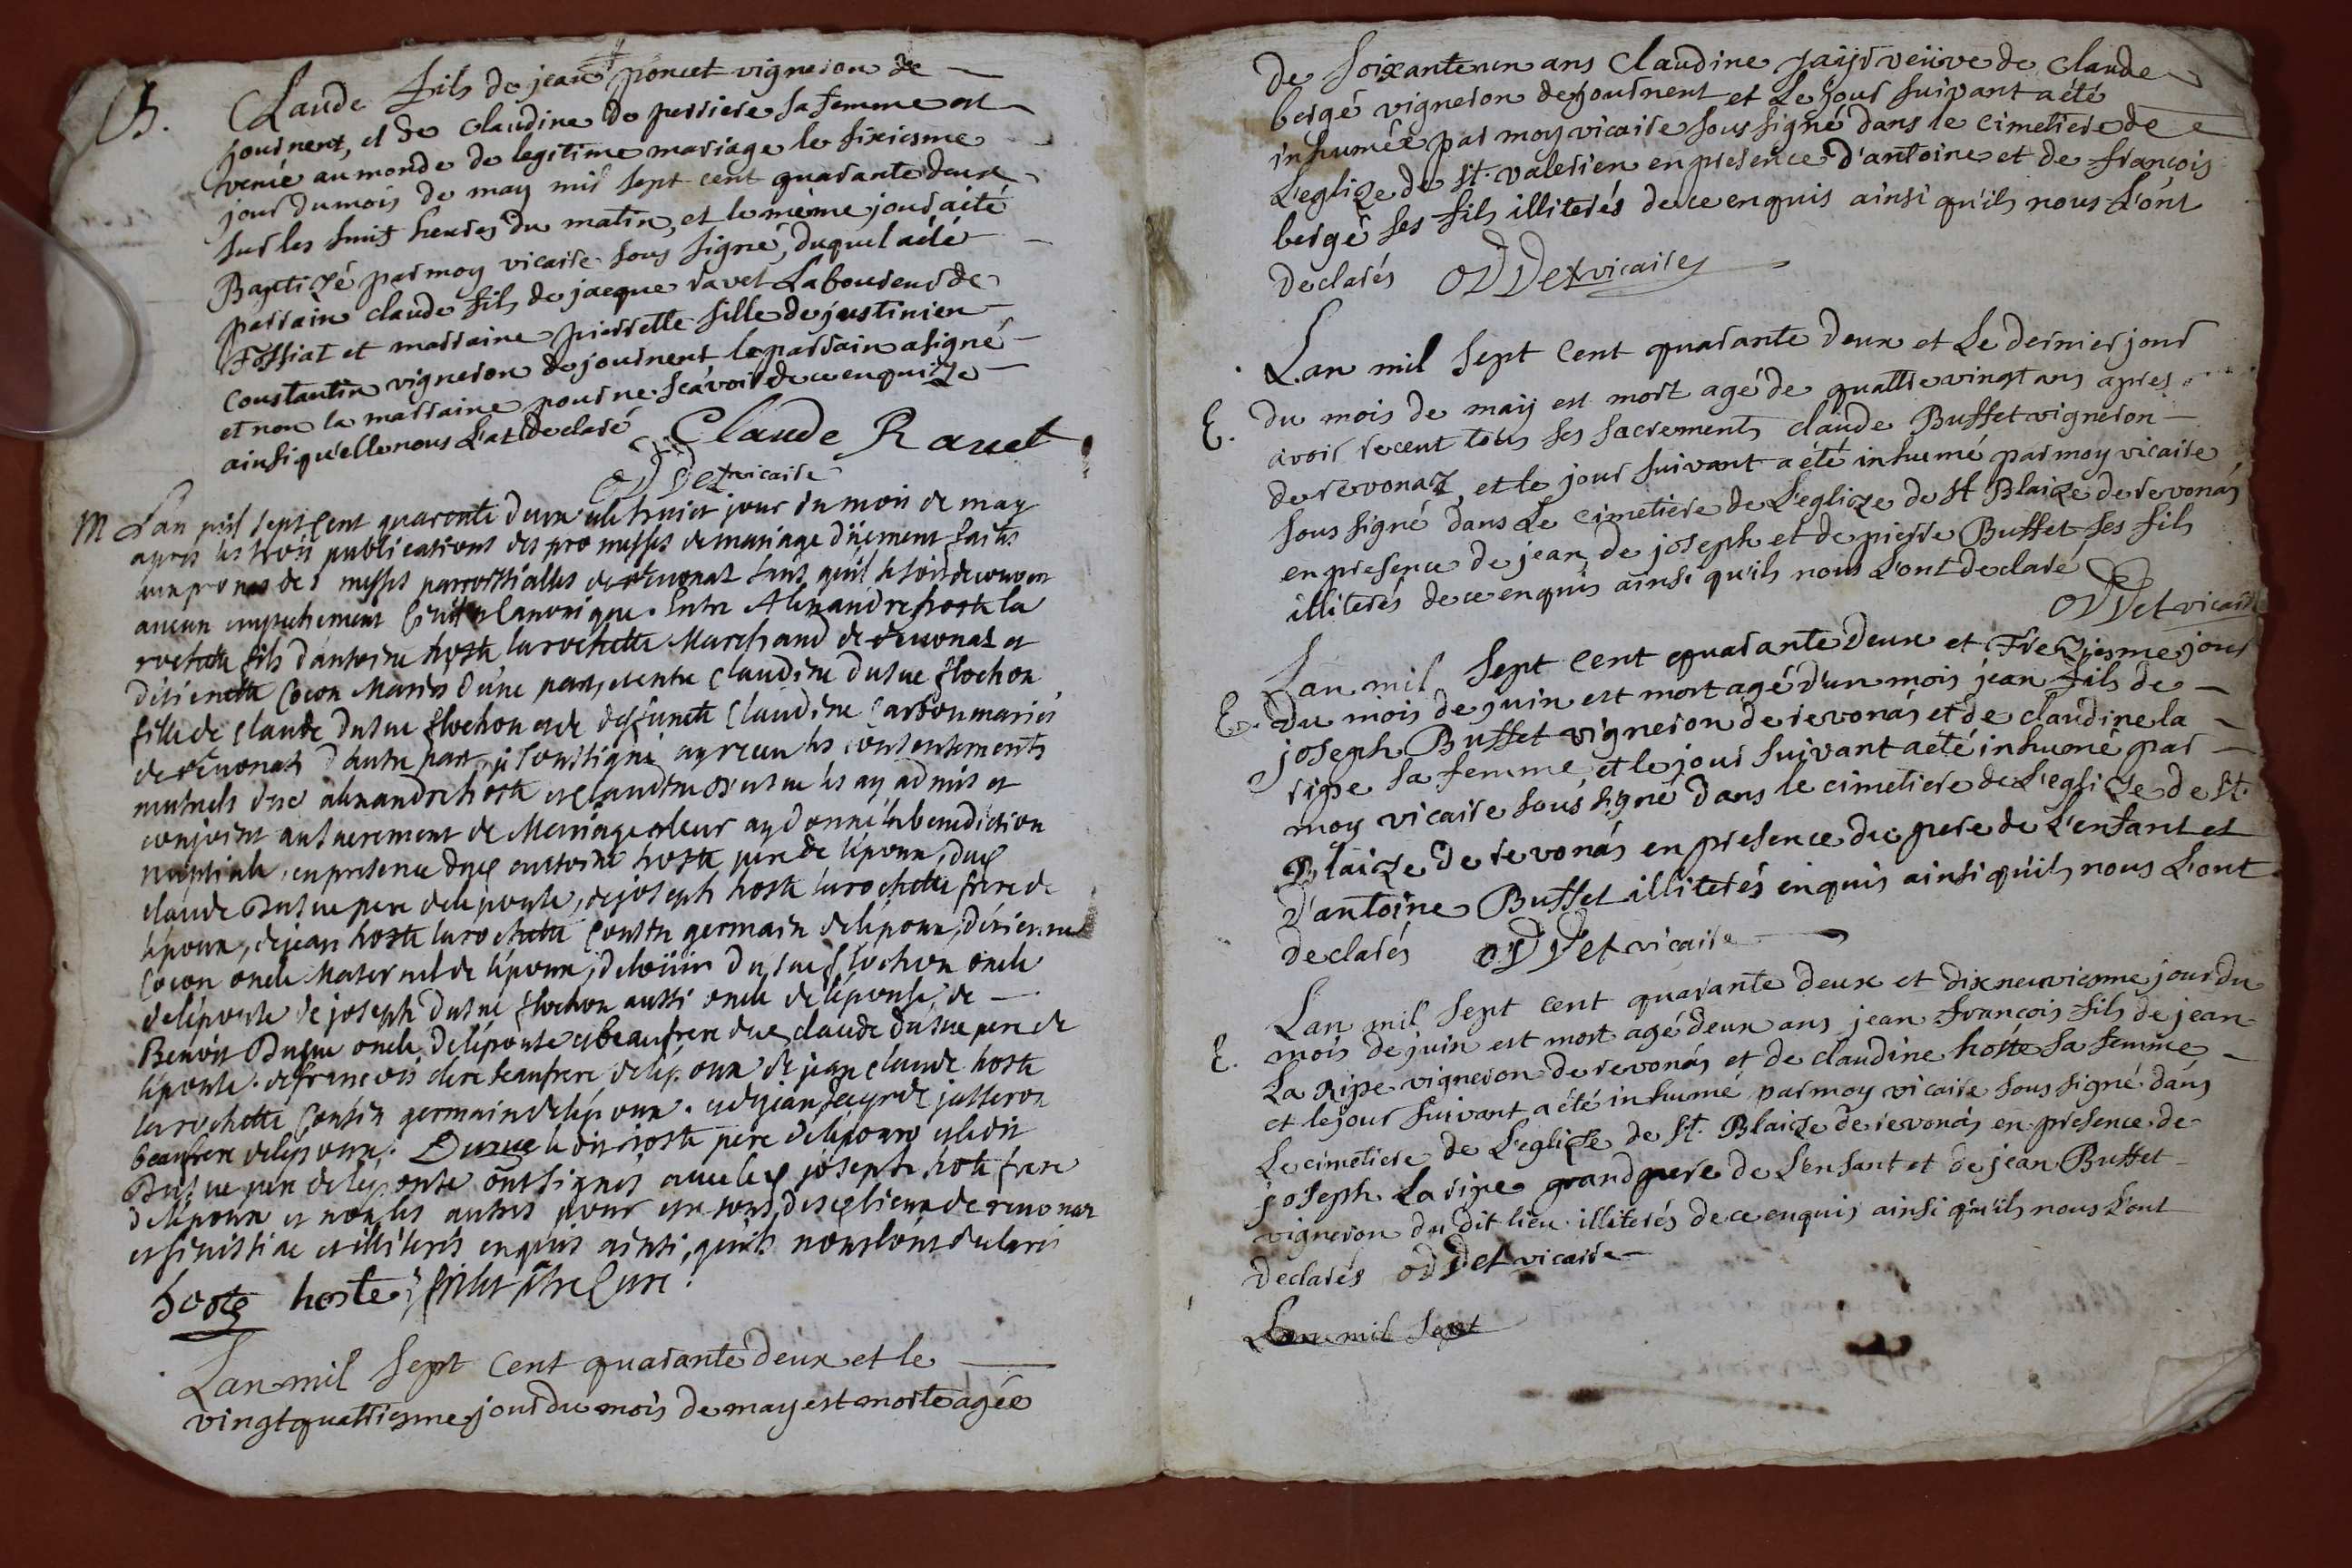 B. Claude fils de jean poncet vigneron de
journent, et de Claudine de perriere sa femme est
venie au monde de legitime mariage le sixiesme
jour du mois de may mil sept cent quarante deux
sur les huit heures du matin, et le même jour a été
Baptizé par moy vicaire sous signé, duquel a été
parrain claude fils de jacque ravet Laboureur de
Fossiat et marraine pierrette fille de justinien
Constantin vigneron de journent le parrain a signé
et non la marraine pour ne sçavoir de ce enquize
ainsi qu'elle nous L'at Declaré Claude Ravet
ODDet vicaire
M Lan mil sept cent quarente deux et le huict jour du mois de may
apres les trois publications des promesses de mariage düement faites
aux prones des messes parroissialles de revonas sans qu'il se soit decouvert
aucun empechement Civil n Canonique. Entre Alexandre hoste la
rochette fils d'antoine hoste larochette Marchand de revonas et
détienette Cocon Mariés d'une part, et entre Claudine dusuc flochon
fille de claude dusuc flochon et de deffuncte Claudine Carron mariés
de revonas d'autre part, je soussigné ay receu les consentements
mutuels dud alexandre hoste et claudine dusuc les ay admis et
conjoint au sacrement de Mariage et leur ay donné la benediction
nuptiale, en presence dud antoine hoste pere de l'époux, dud
claude dusuc pere de l'épouse, de joseph hoste larochette frere de
l'époux, de jean hoste larochette Cousin germain de l'époux, détienne
Cocon oncle Maternel de l'époux, de loüis dusuc flochon oncle
de l'épouse de joseph dusuc flochon aussi oncle de l'épouse, de
Benoit Dusuc oncle de l'épouse et beaufrere dud claude dusuc pere de
l'épouse. de françois clere beaufrere de l'époux de jean claude hoste
larochette Cousin germain de l'époux. et de jean de jasseron
beaufrere de l'époux. Duquel le dit hoste pere de l'époux et ledit
Dusuc pere de l'épouse ont signés avec led joseph hoste frere
de l'époux et non les autres pour être tous desd lieux de revonas
et illiterés enquis ainsi, qu'ils nous l'ont declaré
hoste hoste ptre Curé.
Lan mil sept cent quarante deux et le
vingtquatriesme jour du mois de may est morte agée
de soixante un ans Claudine jaijr veüve de claude
bergé vigneron de journent et Le jour suivant a été
inhumée par moy vicaire sous signé dans le cimetiere de
L'eglize de st. valerien en presence d'antoine et de françois
bergé ses fils illiterés de ce enquis ainsi qu'ils nous L'ont
declarés ODDet vicaire
Lan mil sept Cent quarante deux et Le dernier jour
E. du mois de maij est mort agé de quattre vingt ans apres
avoir receut tous ses sacrements claude Buffet vigneron
de revonaz, et le jour suivant a été inhumé par moy vicaire
sous signé dans Le cimetiere de L'eglize de st Blaize de revonás
en presence de jean, de joseph et de pierre Buffet ses fils
illiterés de ce enquis ainsi qu'ils nous L'ont declaré
ODDet vicaire
Lan mil sept cent quarante deux et trezjesme jour
E. du mois de juin est mort agé d'un mois jean fils de
joseph Buffet vigneron de revonás et de claudine la
ripe sa femme, et le jour suivant a été inhumé par
moy vicaire sous signé dans le cimetiere de L'eglize de st.
Blaize de revonás en presence du pere de L'enfant et
d'antoine Buffet illiterés enquis ainsi qu'ils nous L'ont
declarés ODDet vicaire
Lan mil sept cent quarante deux et dixneuviesme jour du
E. mois de juin est mort agé deux ans jean françois fils de jean
La Ripe vigneron de revonás et de claudine hoste sa femme
et le jour suivant a été inhumé par moy vicaire sous signé dans
Le cimetiere de L'eglize de st. Blaize de revonás en presence de
joseph La ripe grand pere de L'enfant et de jean Buffet
vigneron du dit lieu illiterés de ce enquis ainsi qu'ils nous L'ont
declarés ODDet vicaire
Lan mil sept